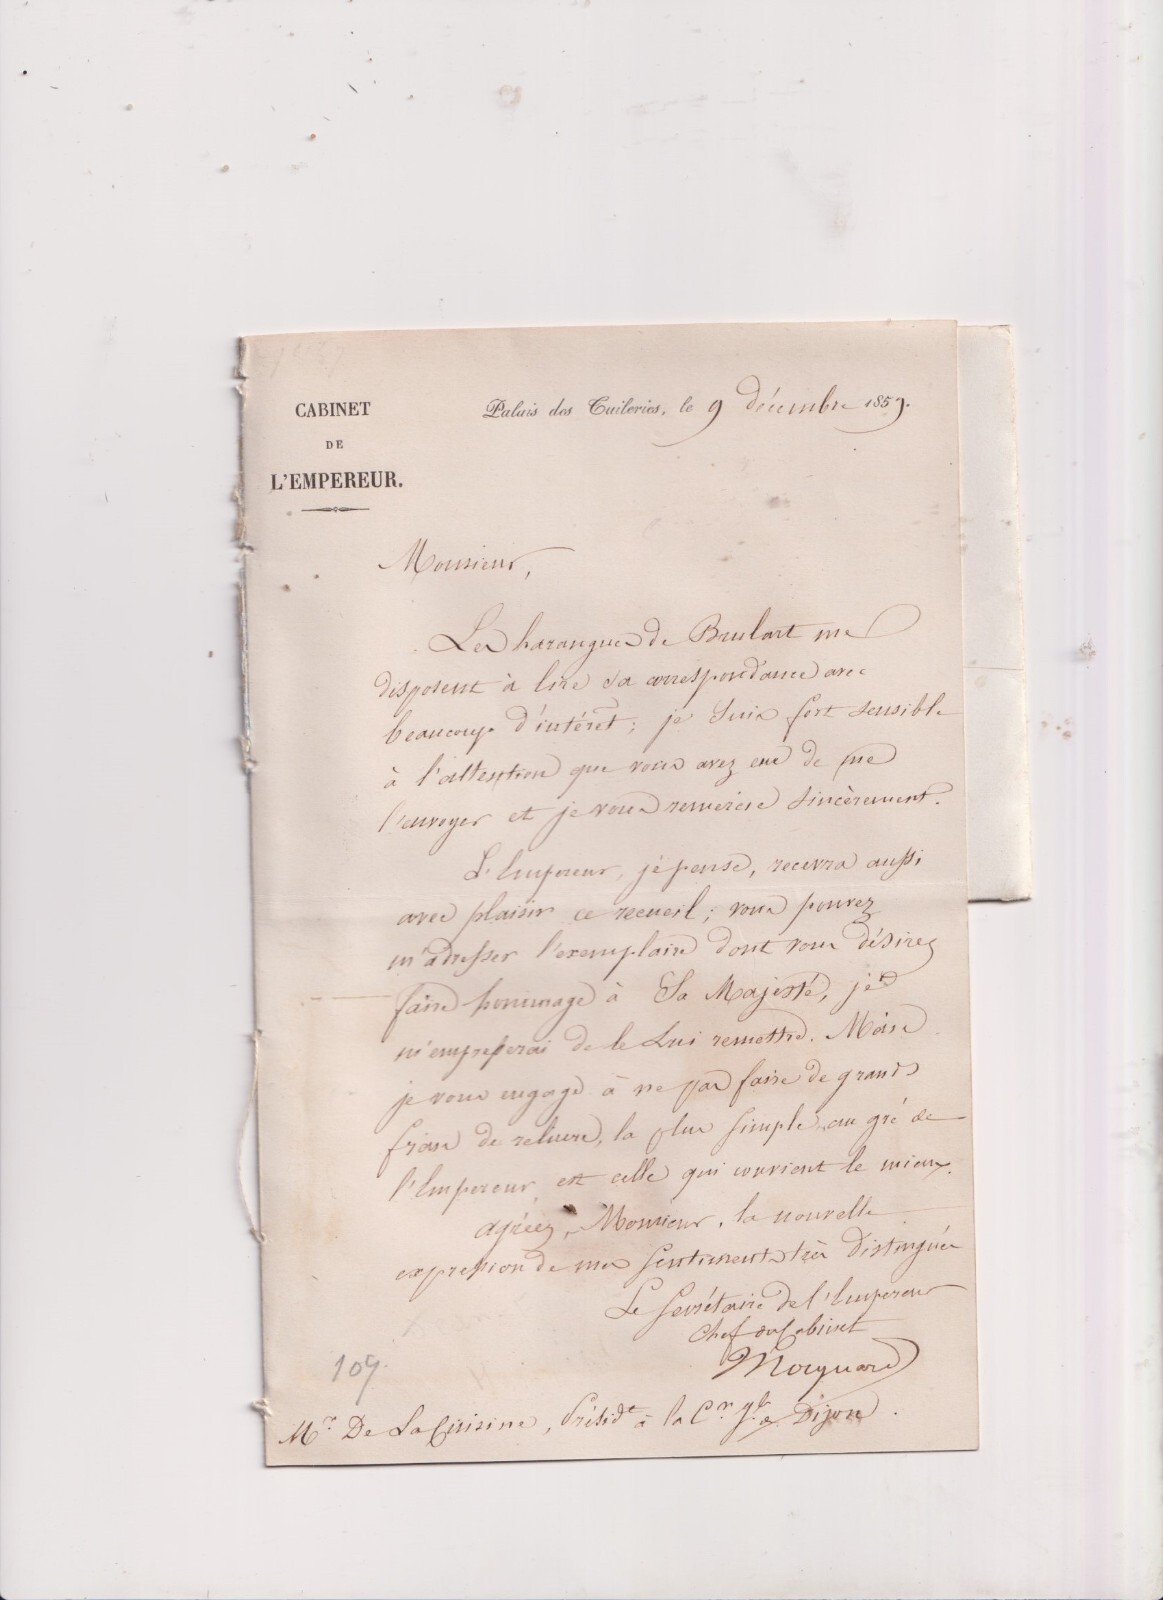 CABINET
DE
L'EMPEREUR.
Palais des Tuileries, le 9 décembre 1857.
Monsieur,
Les harangues de Brulart me
disposent à lire sa correspondance avec
beaucoup d'intérêt; je suis fort sensible
à l'attention que vous avez eue de me
l'envoyer et je vous remercie sincèrement.
L'Empereur, je pense, recevra aussi
avec plaisir ce recueil; vous pouvez
m'adresser l'exemplaire dont vous désirez
faire hommage à Sa Majesté, je
m'empresserai de le Lui remettre. Mais
je vous engage à ne pas faire de grands
frais de reliure, la plus simple, au gré de
l'Empereur, est celle qui convient le mieux.
agréez, Monsieur, la nouvelle
expression de mes sentiments très distingués
Le Secrétaire de l'Empereur
Chef du Cabinet
Mocquard
109.
Mr. De La Cuisine, Présidt à la Cr. Jle de Dijon.